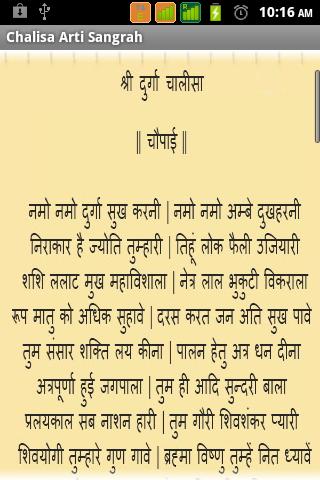 10:16 AM
Chalisa Arti Sangrah
श्री दुर्गा चालीसा
|| चौपाई ||
नमो नमो दुर्गा सुख करनी | नमो नमो अम्बे दुखहरनी
निराकार है ज्योति तुम्हारी | तिहूं लोक फैली उजियारी
शशि ललाट मुख महाविशाला | नेत्र लाल भृकुटी विकराला
रूप मातु को अधिक सुहावे | दरस करत जन अति सुख पावे
तुम संसार शक्ति लय कीना | पालन हेतु अन्न धन दीना
अन्नपूर्णा हुई जगपाला | तुम ही आदि सुन्दरी बाला
प्रलयकाल सब नाशन हारी | तुम गौरी शिवशंकर प्यारी
शिवयोगी तुम्हारे गुण गावे | ब्रह्मा विष्णु तुम्हें नित ध्यावें